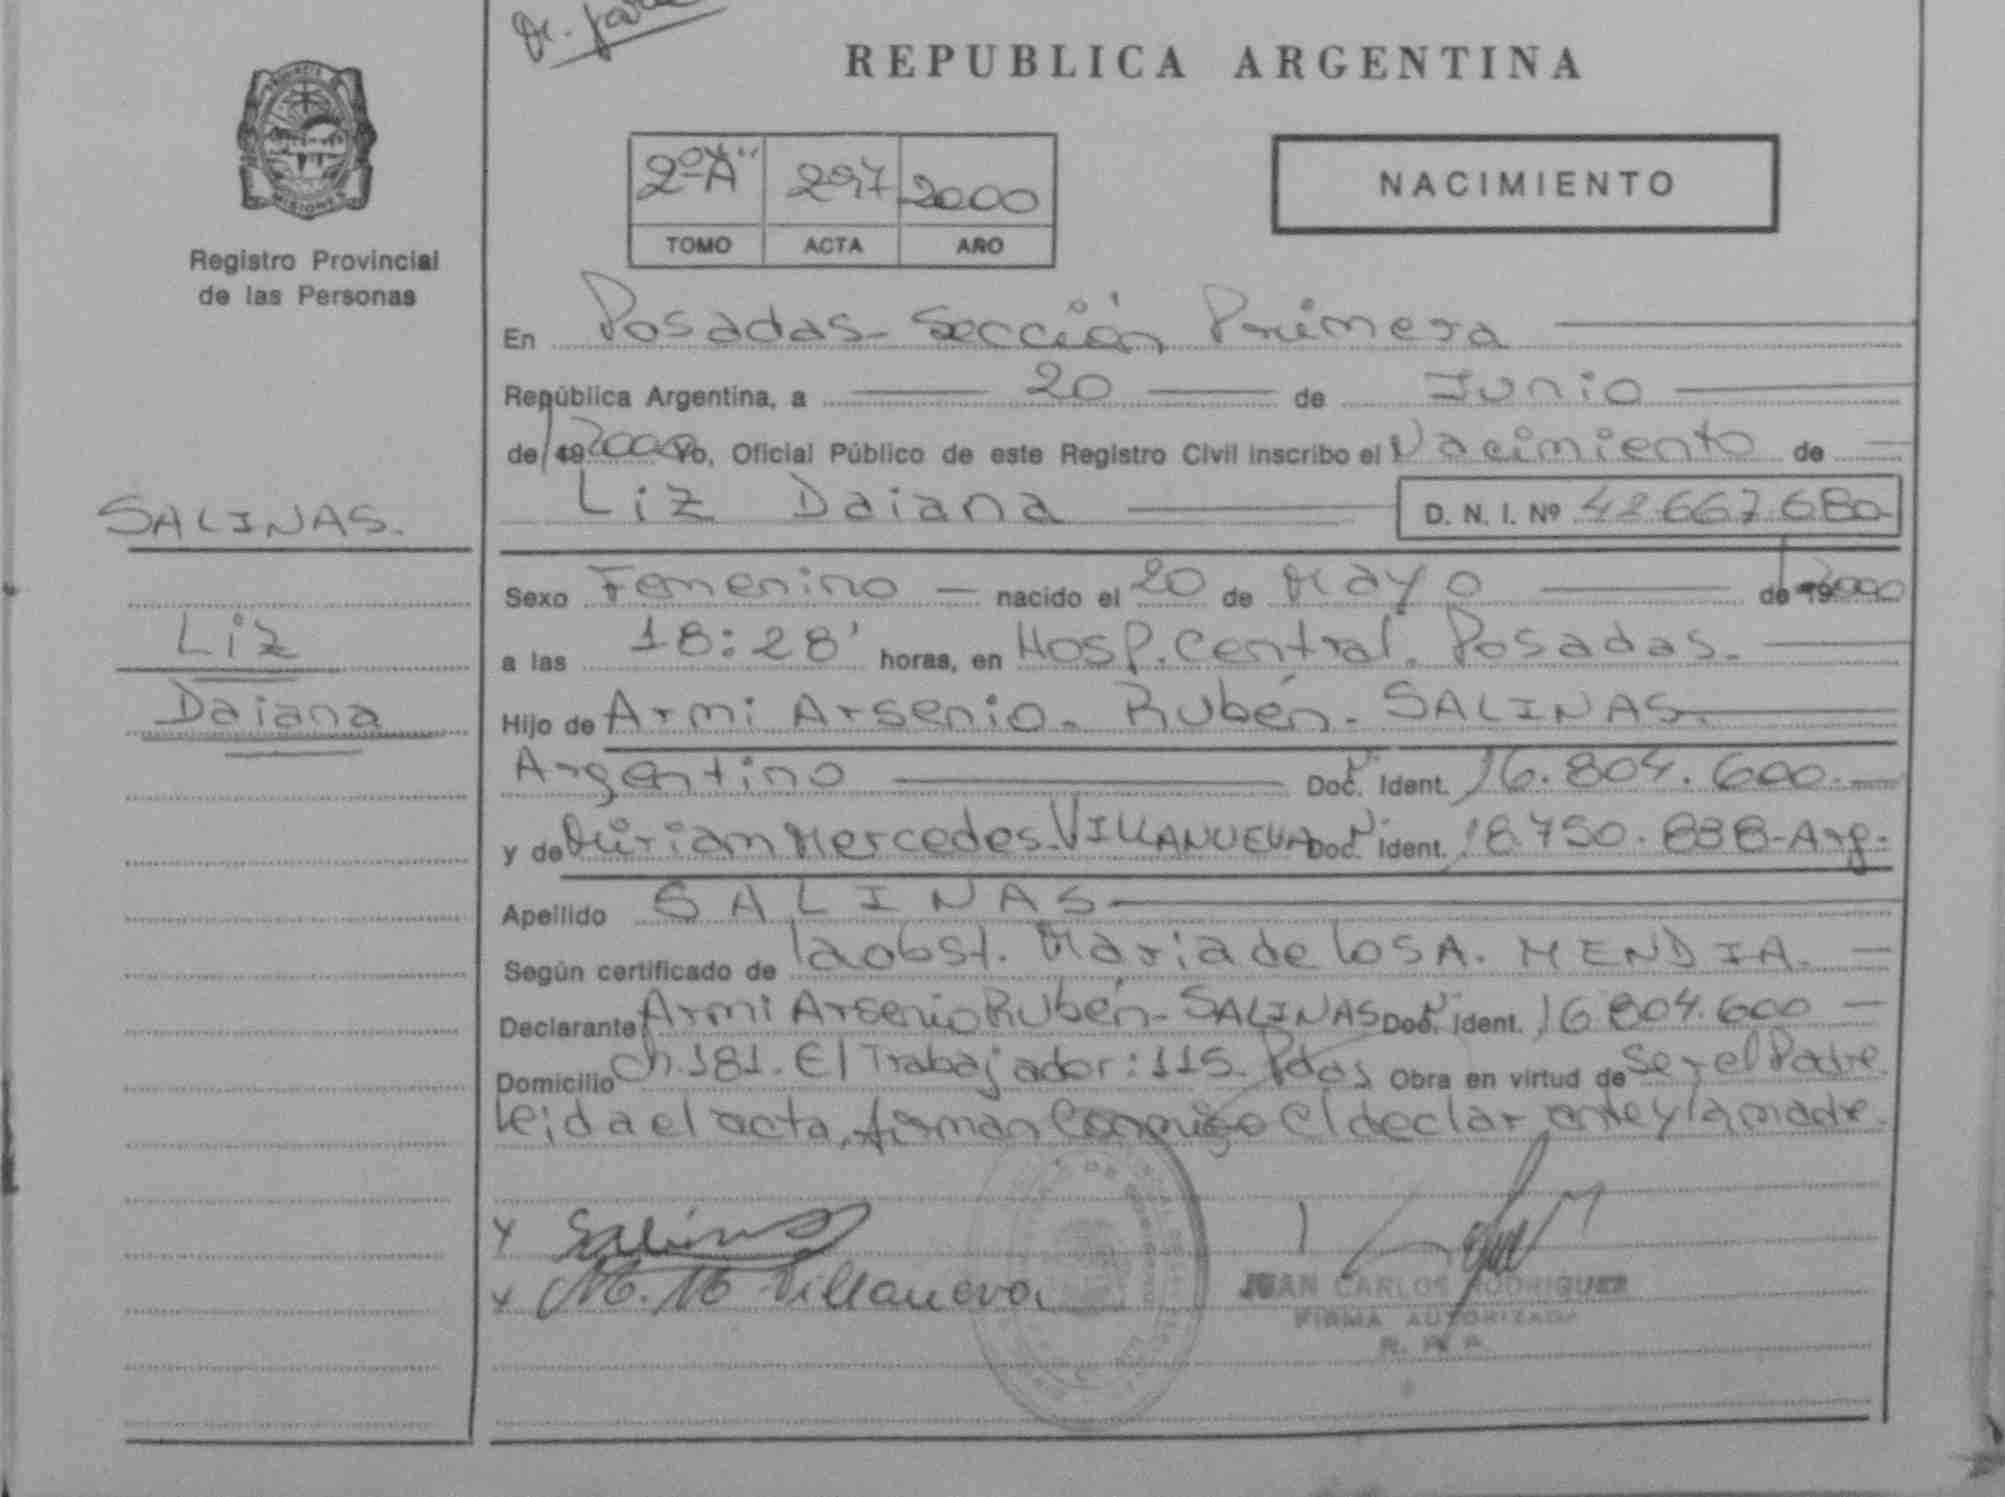 REPUBLICA ARGENTINA
2º "A" 297 2000
TOMO ACTA AÑO
NACIMIENTO
Registro Provincial
de las Personas
SALINAS.
Liz
Daiana
En Posadas - Sección Primera
República Argentina, a 20 de Junio
de 19 2000 Yo, Oficial Público de este Registro Civil inscribo el Nacimiento de
Liz Daiana D. N. I. Nº 42.667.680
Sexo Femenino - nacido el 20 de Mayo de 19 2000
a las 18:28' horas, en Hosp. Central. Posadas.
Hijo de Armi Arsenio - Rubén - SALINAS.
Argentino Doc. Ident. 16.804.600.
y de Miriam Mercedes - VILLANUEVA Doc. Ident. 18.750.838 - Arg.
Apellido SALINAS
Según certificado de la obst. Maria de los A. MENDIA.
Declarante Armi Arsenio Rubén - SALINAS Doc. Ident. 16.804.600
Domicilio Ch. 181. El Trabajador: 115. Pdas Obra en virtud de Ser el Padre
leida el acta, firman conmigo el declarante y la madre.
x Salinas
x M. M Villanueva
JUAN CARLOS RODRIGUEZ
FIRMA AUTORIZADA
R. P. P.